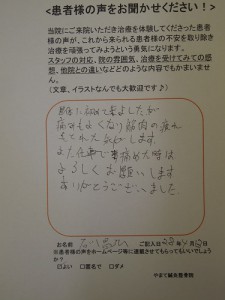 <患者様の声をお聞かせください!>
当院にご来院いただき治療を体験してくださった患者
様の声が、これから来られる患者様の不安を取り除き
治療を頑張ってみようという勇気になります。
スタッフの対応、院の雰囲気、治療を受けてみての感
想、他院との違いなどどのような内容でもかまいませ
ん。
(文章、イラストなんでも大歓迎です♪)
初めて来ましたが
痛みもよくなり筋肉の疲れ
もとれた気がします
また仕事で痛めた時は
よろしくお願いします
ありがとうございました
お名前
ご記入日
◎患者様の声をホームページ等に連載させてもらってもいいでしょう
か?
□よい □匿名で □ダメ
やまて鍼灸整骨院